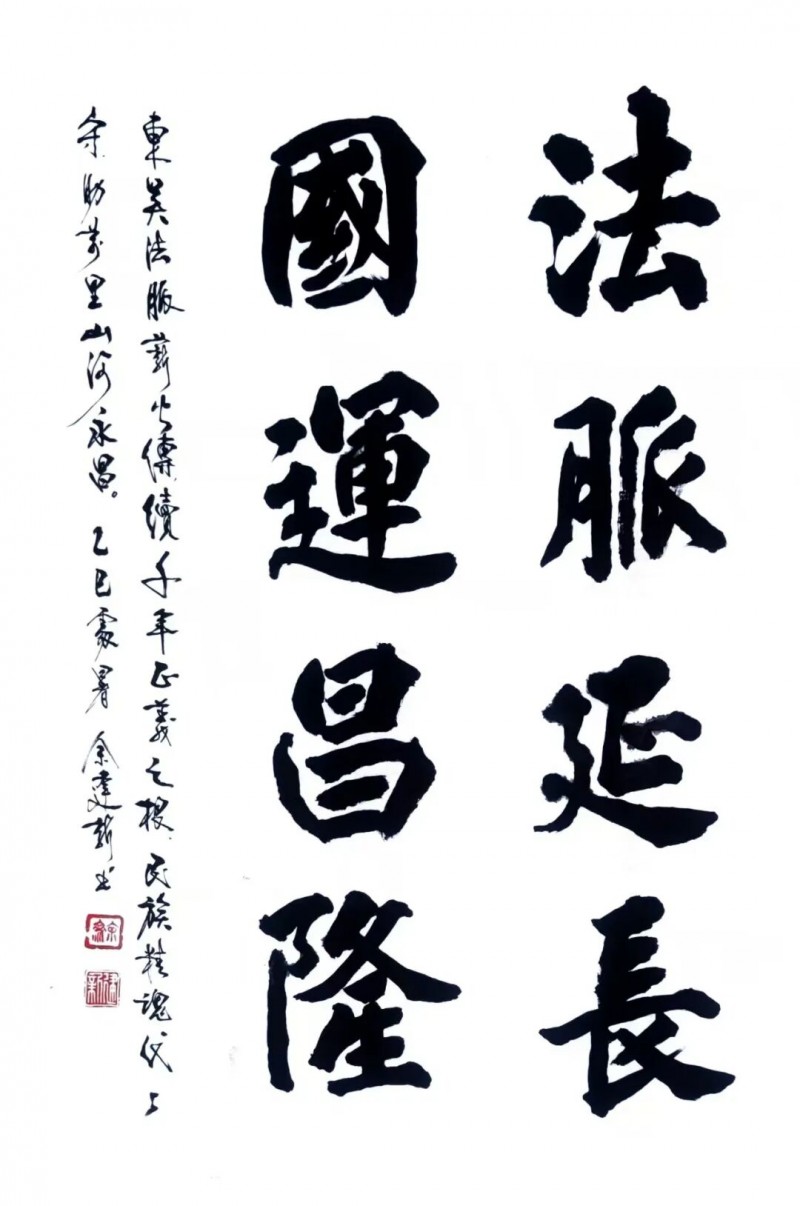 法脈延長
國運昌隆
東吴法脈薪火傳續千年正義之根民族精魂代代
余助萬里山河永昌。乙巳處暑余建新书
余
建新